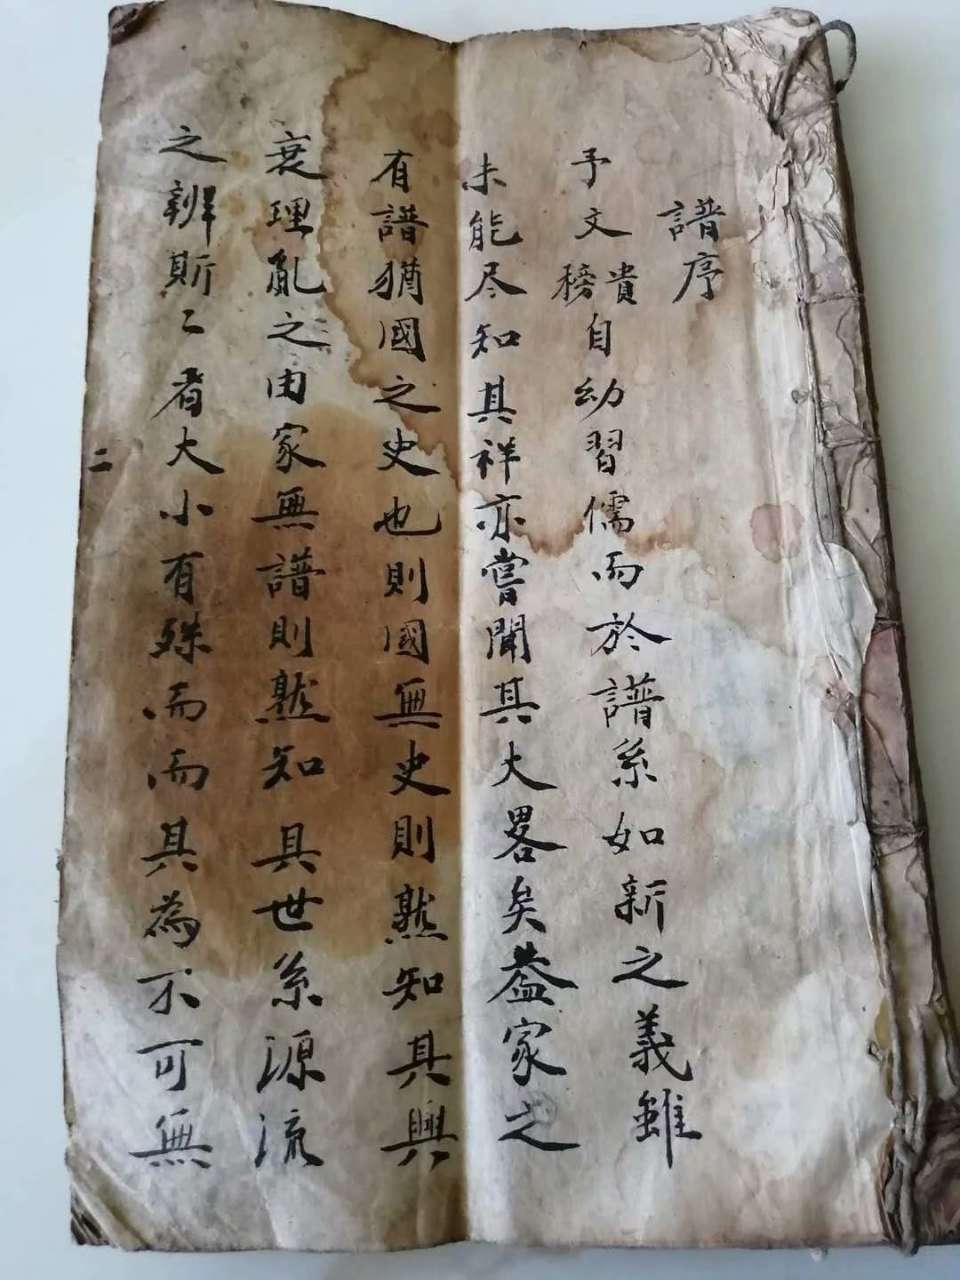 譜序
予文貴榜自幼習儒而於譜系如新之義雖
未能尽知其祥亦嘗聞其大畧矣蓋家之
有譜猶國之史也則國無史則熟知其興
衰理亂之由家無譜則熟知其世系源流
之辨斯二者大小有殊而而其為不可無
二